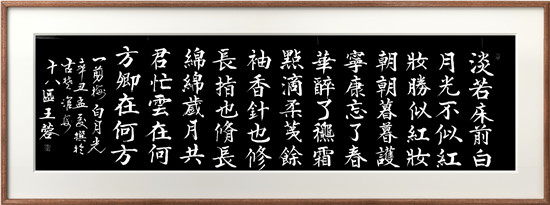 淡若床前白
月光不似紅
妝勝似紅妝
朝朝暮暮護
寧康忘了春
華醉了穠霜
點滴柔荑餘
袖香針也修
長指也脩長
綿綿歲月共
君忙雲在何
方卿在何方
一剪梅 白月光
辛丑孟夏撰於
古楚淮安
十八區王蓉